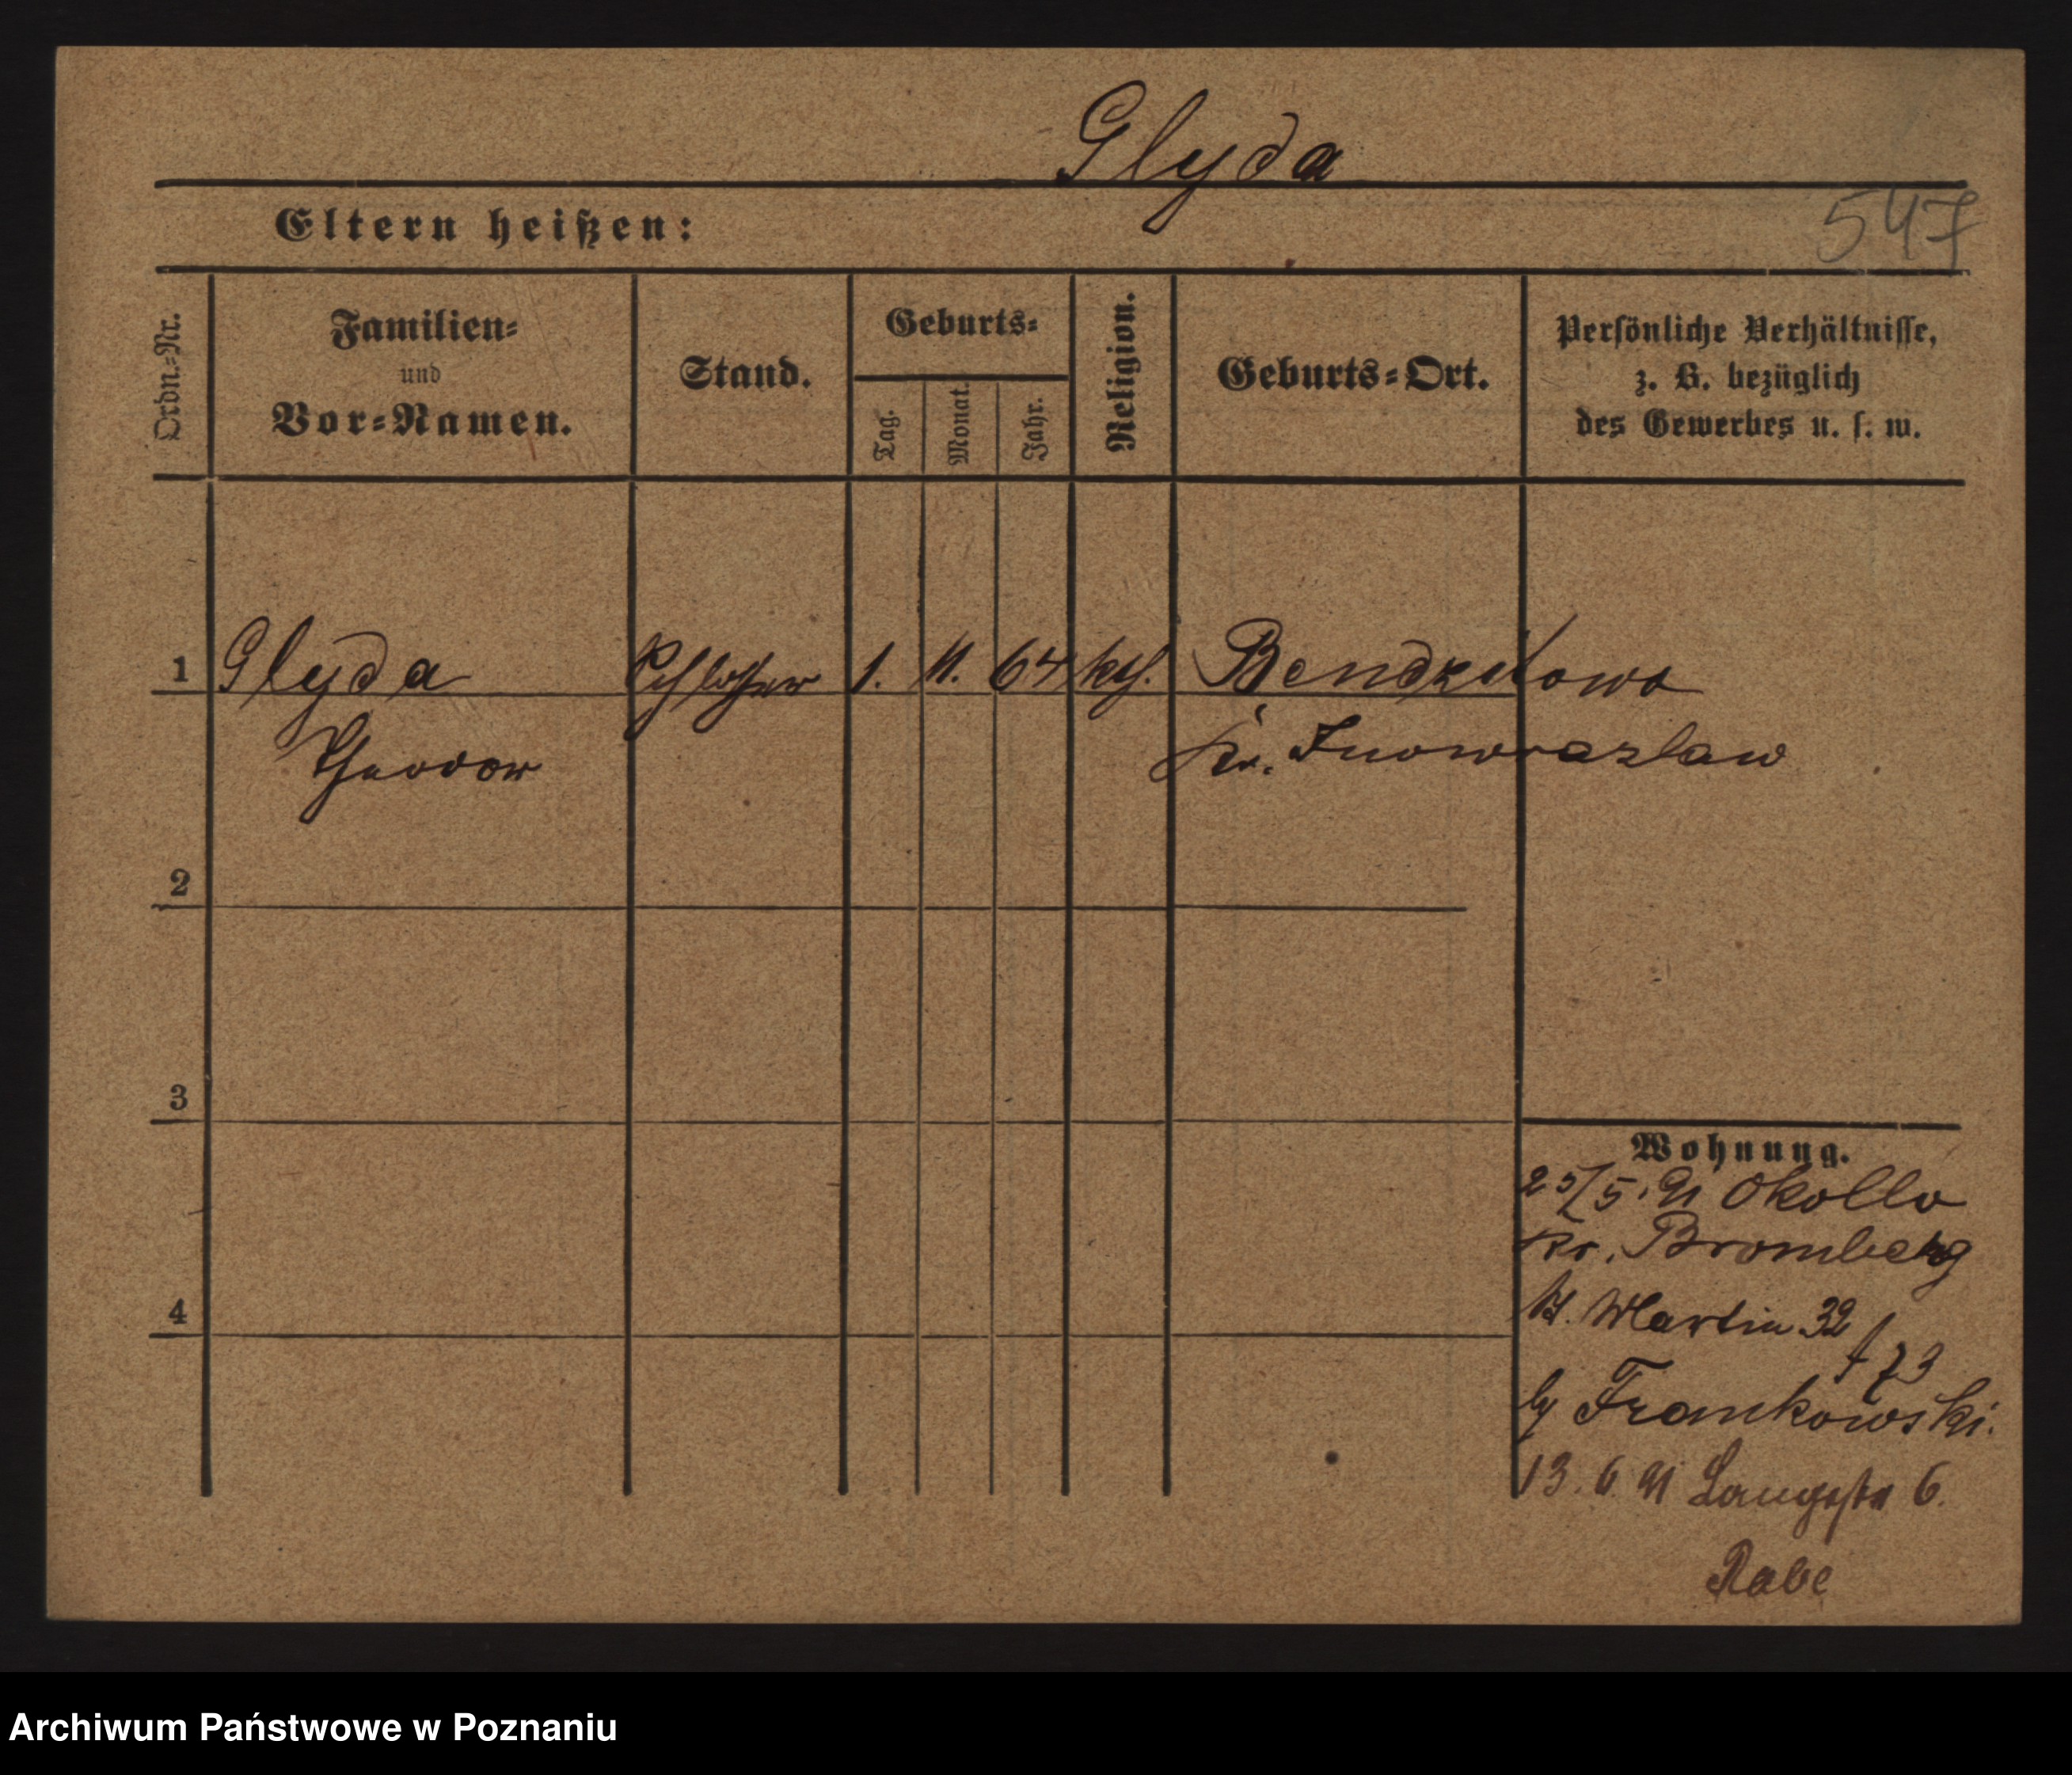 Glyda
Eltern heißen:
547
Ordn.-Nr.
Familien-
und
Vor-Namen.
Stand.
Geburts-
Tag.
Monat.
Jahr.
Religion.
Geburts-Ort.
Persönliche Verhältnisse,
z. B. bezüglich
des Gewerbes u. s. w.
1 Glyda Schlosser 1. 11. 64 kth.
Theodor
Kr. Inowrazlaw
2
3
4
Wohnung.
25/5. 91 Okollo
Kr. Bromberg
St. Martin 32
73
by Frankowski.
13. 6. 91 Langestr 6.
Rabe
Archiwum Państwowe w Poznaniu